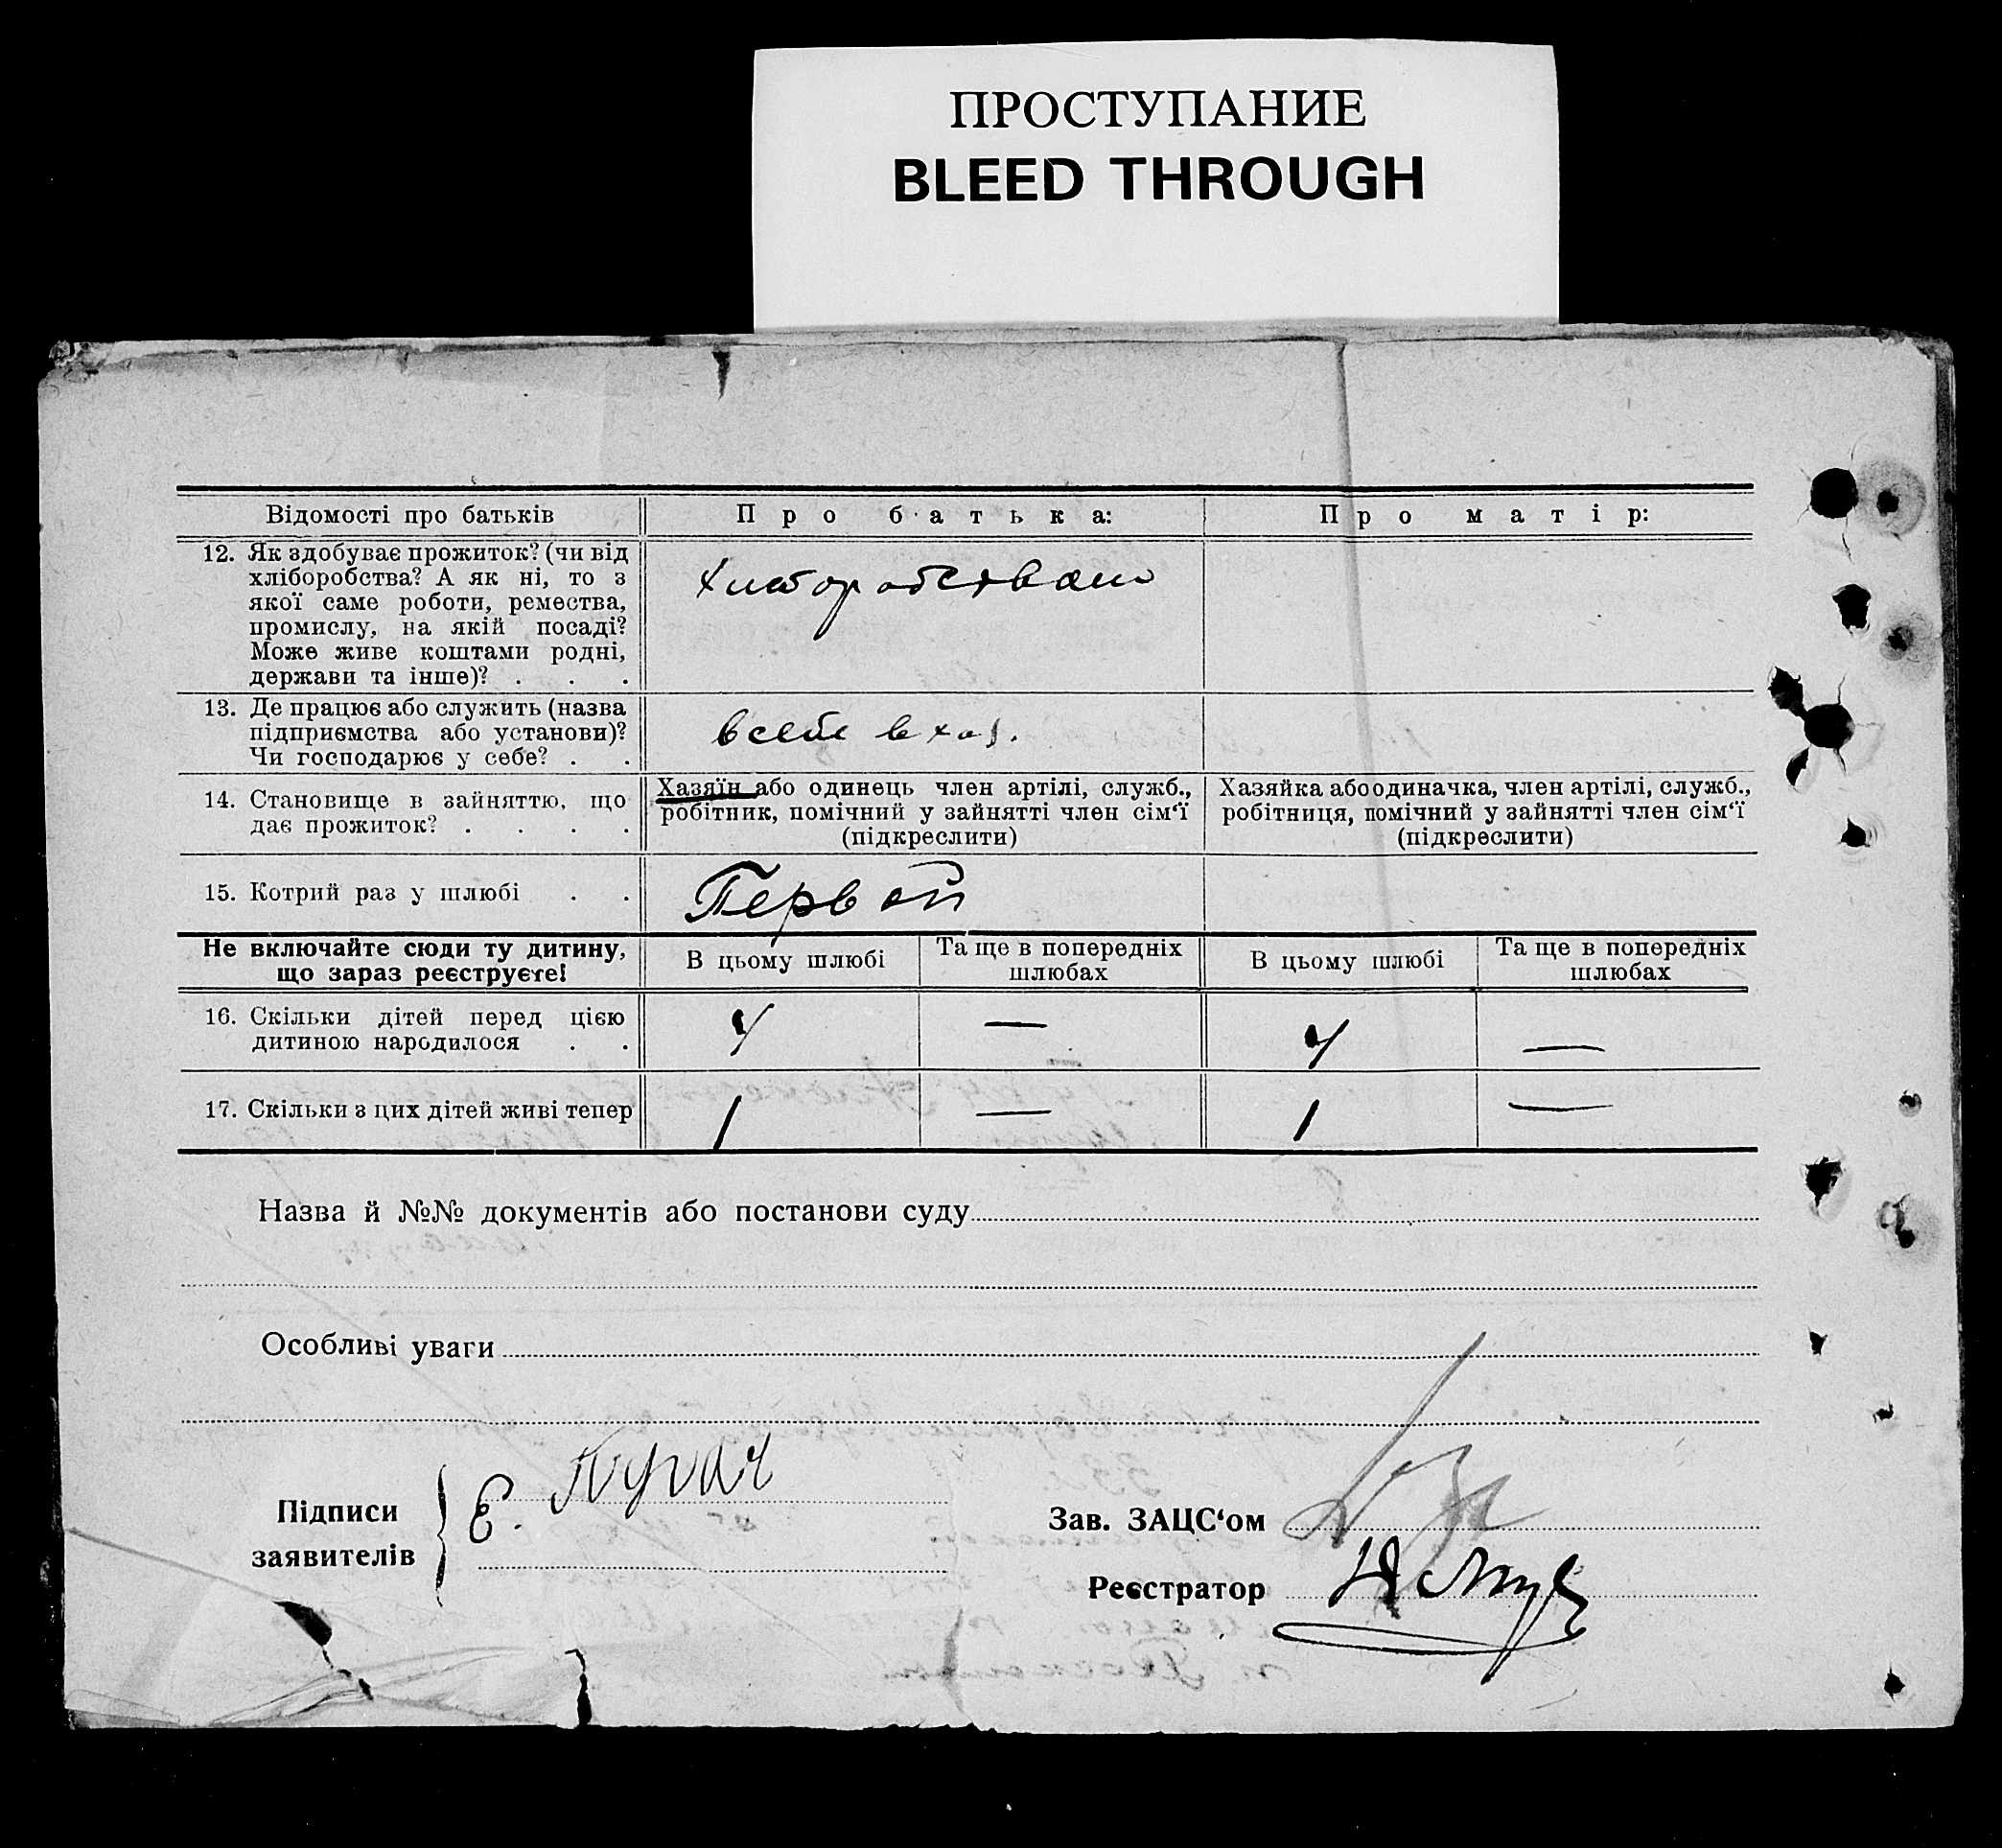 ПРОСТУПАНИЕ
BLEED THROUGH
Відомості про батьків
Про батька:
Про матір:
12. Як здобуває прожиток? (чи від
хліборобства? А як ні, то з
якої саме роботи, ремества,
промислу, на якій посаді?
Може живе коштами родні,
держави та інше)? . . .
13. Де працює або служить (назва
підприємства або установи)?
Чи господарює у себе? . .
14. Становище в зайняттю, що
дає прожиток? . . . .
Хазяїн або одинець член артілі, служб.,
робітник, помічний у зайнятті член сім‘ї
(підкреслити)
Хазяйка або одиначка, член артілі, служб.,
робітниця, помічний у зайнятті член сім‘ї
(підкреслити)
15. Котрий раз у шлюбі . .
Первой
Не включайте сюди ту дитину,
що зараз реєструєте!
В цьому шлюбі
Та ще в попередніх
шлюбах
В цьому шлюбі
Та ще в попередніх
шлюбах
16. Скільки дітей перед цією
дитиною народилося . .
4
—
4
—
17. Скільки з цих дітей живі тепер
1
—
1
—
Назва й №№ документів або постанови суду
Особливі уваги
Підписи
заявителів
Зав. ЗАЦС‘ом
Реєстратор